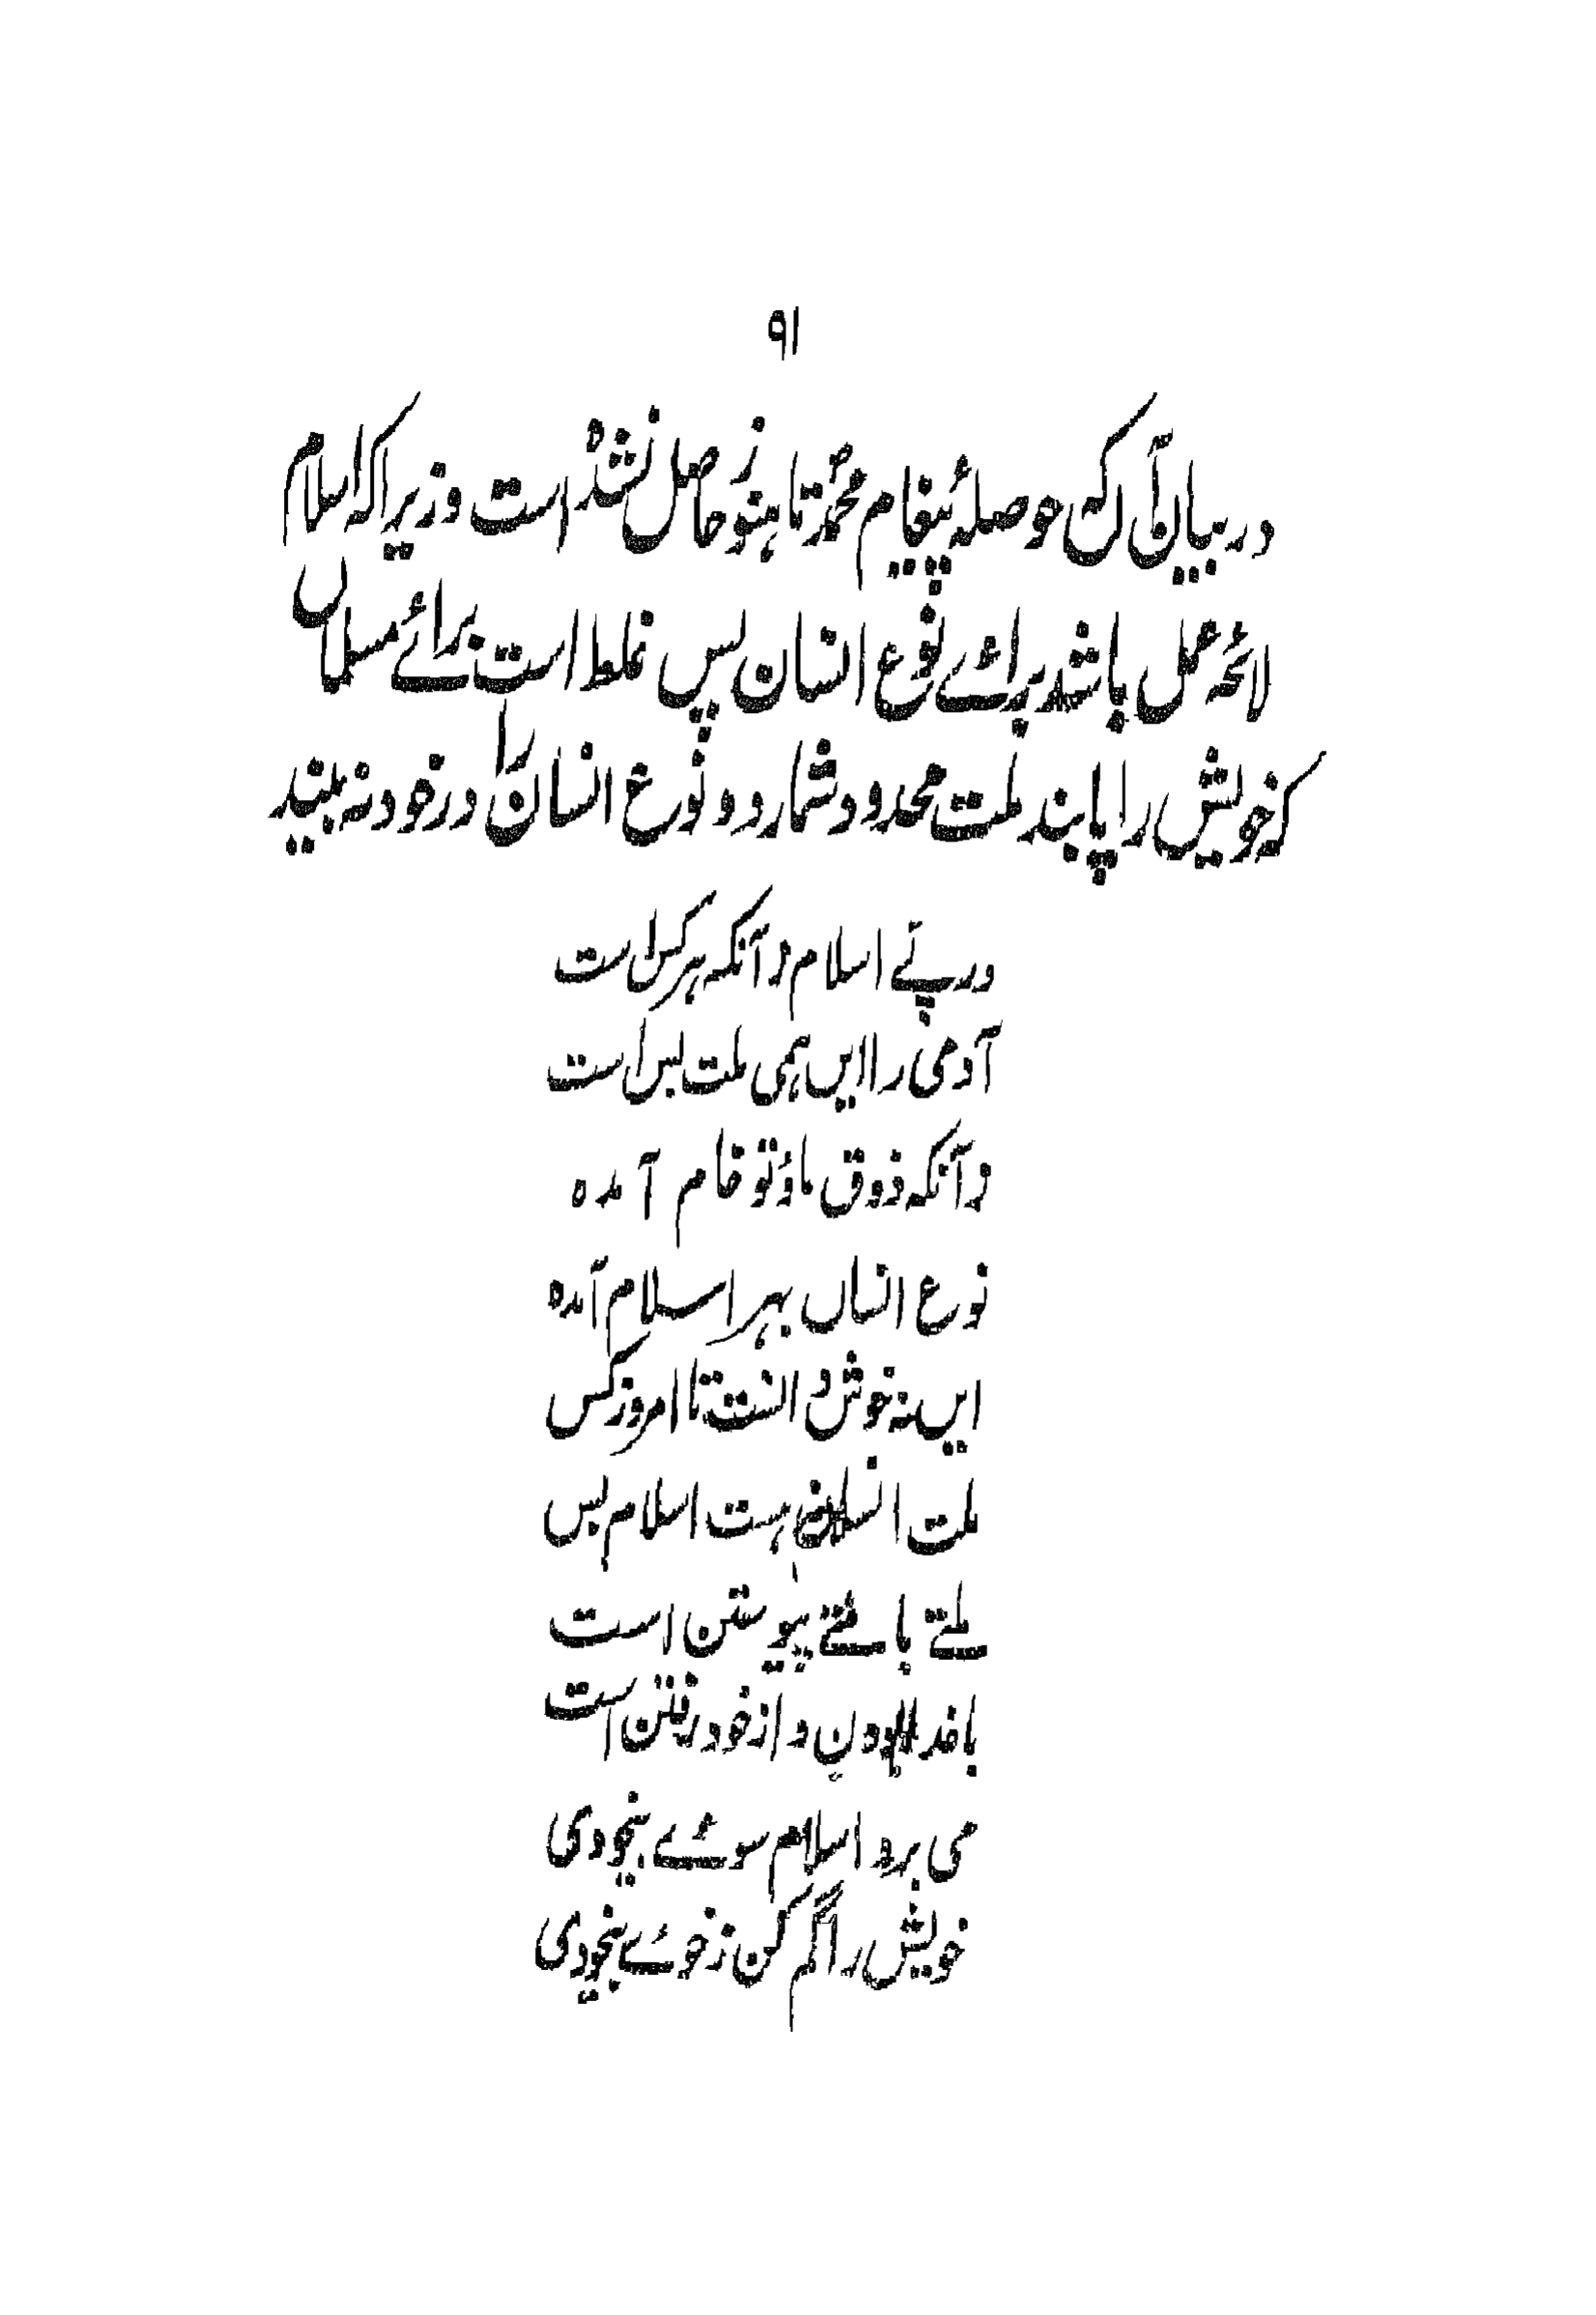 ۹۱
در بیان آں کہ حوصلۂ پیغام محمدؐ تا ہنوز حاصل نشدہ است و زیرا کہ اسلام
لائحہ عمل باشد برائے نوع انسان پس غلط است برائے مسلماں
کہ خویش را پابند ملت محدود شمارد و نوع انسان را در خود نہ بیند
در پئے اسلام زآنکہ ہر کس است
آدمی را ایں ہمی ملت بس است
زآنکہ ذوق ماؤ تو خام آمدہ
نوع انساں بہر اسلام آمدہ
ایں نہ خوش دانست تا امروز کس
ملت انساں ہست اسلام بس
ملتے با ملتے پیوستن است
با خدا بودن و از خود رفتن است
می برد اسلام سوئے بیخودی
خویش را گم کن ز خوئے بیخودی